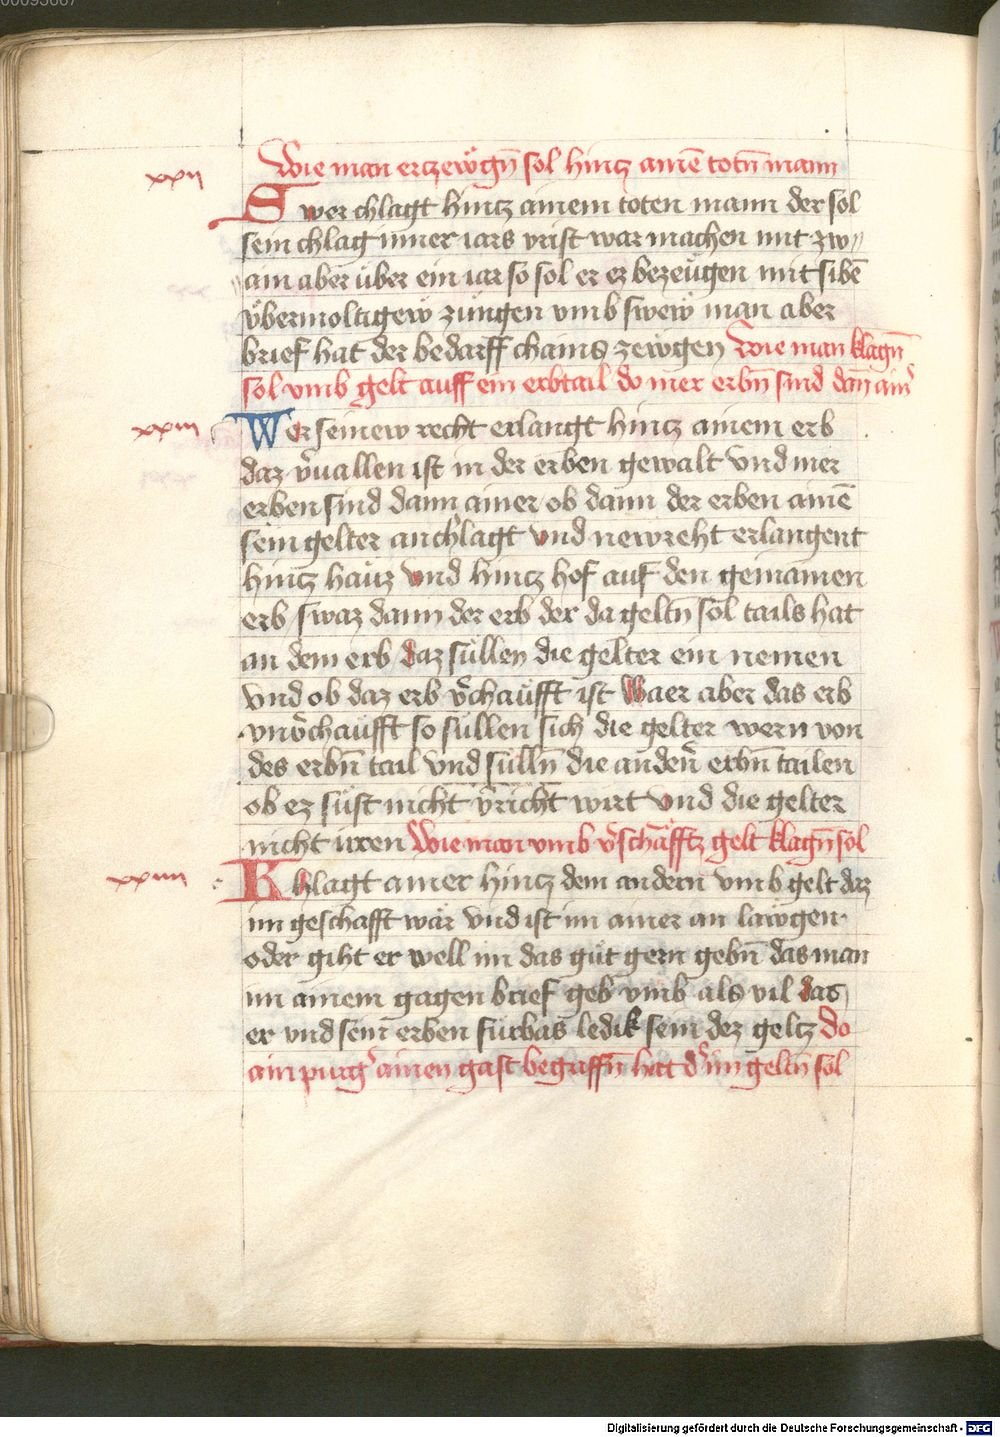 00093667
Wie man erczewgn̄ sol hincz ainē totn̄ mann
xxii
Swer chlagt hincz ainem toten mann der sol
sein chlag inner iars vrist war machen mit zw//
ain aber über ein iar so sol er ez bezeügen mit sibē
vbermoltigew züngen vmb swew man aber
brief hat der bedarff chains zewgen Wie man klagn̄
sol vmb gelt auff ein erbtail do mer erbn̄ sind dan̄ ainꝰ
xxiii
Wer seinew recht erlangt hincz ainem erb
daz vꝰuallen ist in der erben gewalt vnd mer
erben sind dann ainer ob dann der erben ainē
sein gelter anchlagt vnd newreht erlangent
hincz hauz vnd hincz hof auf den gemainen
erb swaz dann der erb der da geltn̄ sol tails hat
an dem erb daz süllen die gelter ein nemen
vnd ob daz erb vꝰchaüfft ist Waer aber das erb
vnvꝰchaufft so süllen sich die gelter wern von
des erbn̄ tail vnd sülln̄ die andeꝰn erbn̄ tailen
ob ez süst nicht vꝰricht wirt vnd die gelter
nicht irren Wie man vmb vꝰschafftz gelt klagn̄ sol
xxiiii
Khlagt ainer hincz dem andern vmb gelt daz
im geschafft wär vnd ist im ainer an lawgen
oder giht er well im das güt gern gebn̄ das man
im ainem gagen brief geb vmb als vil das
er vnd sein erben fürbas ledik sein dez geltz do
ain purgꝰ ainen gast begriffn̄ hat dꝰ im geltn̄ sol
Digitalisierung gefördert durch die Deutsche Forschungsgemeinschaft - DFG